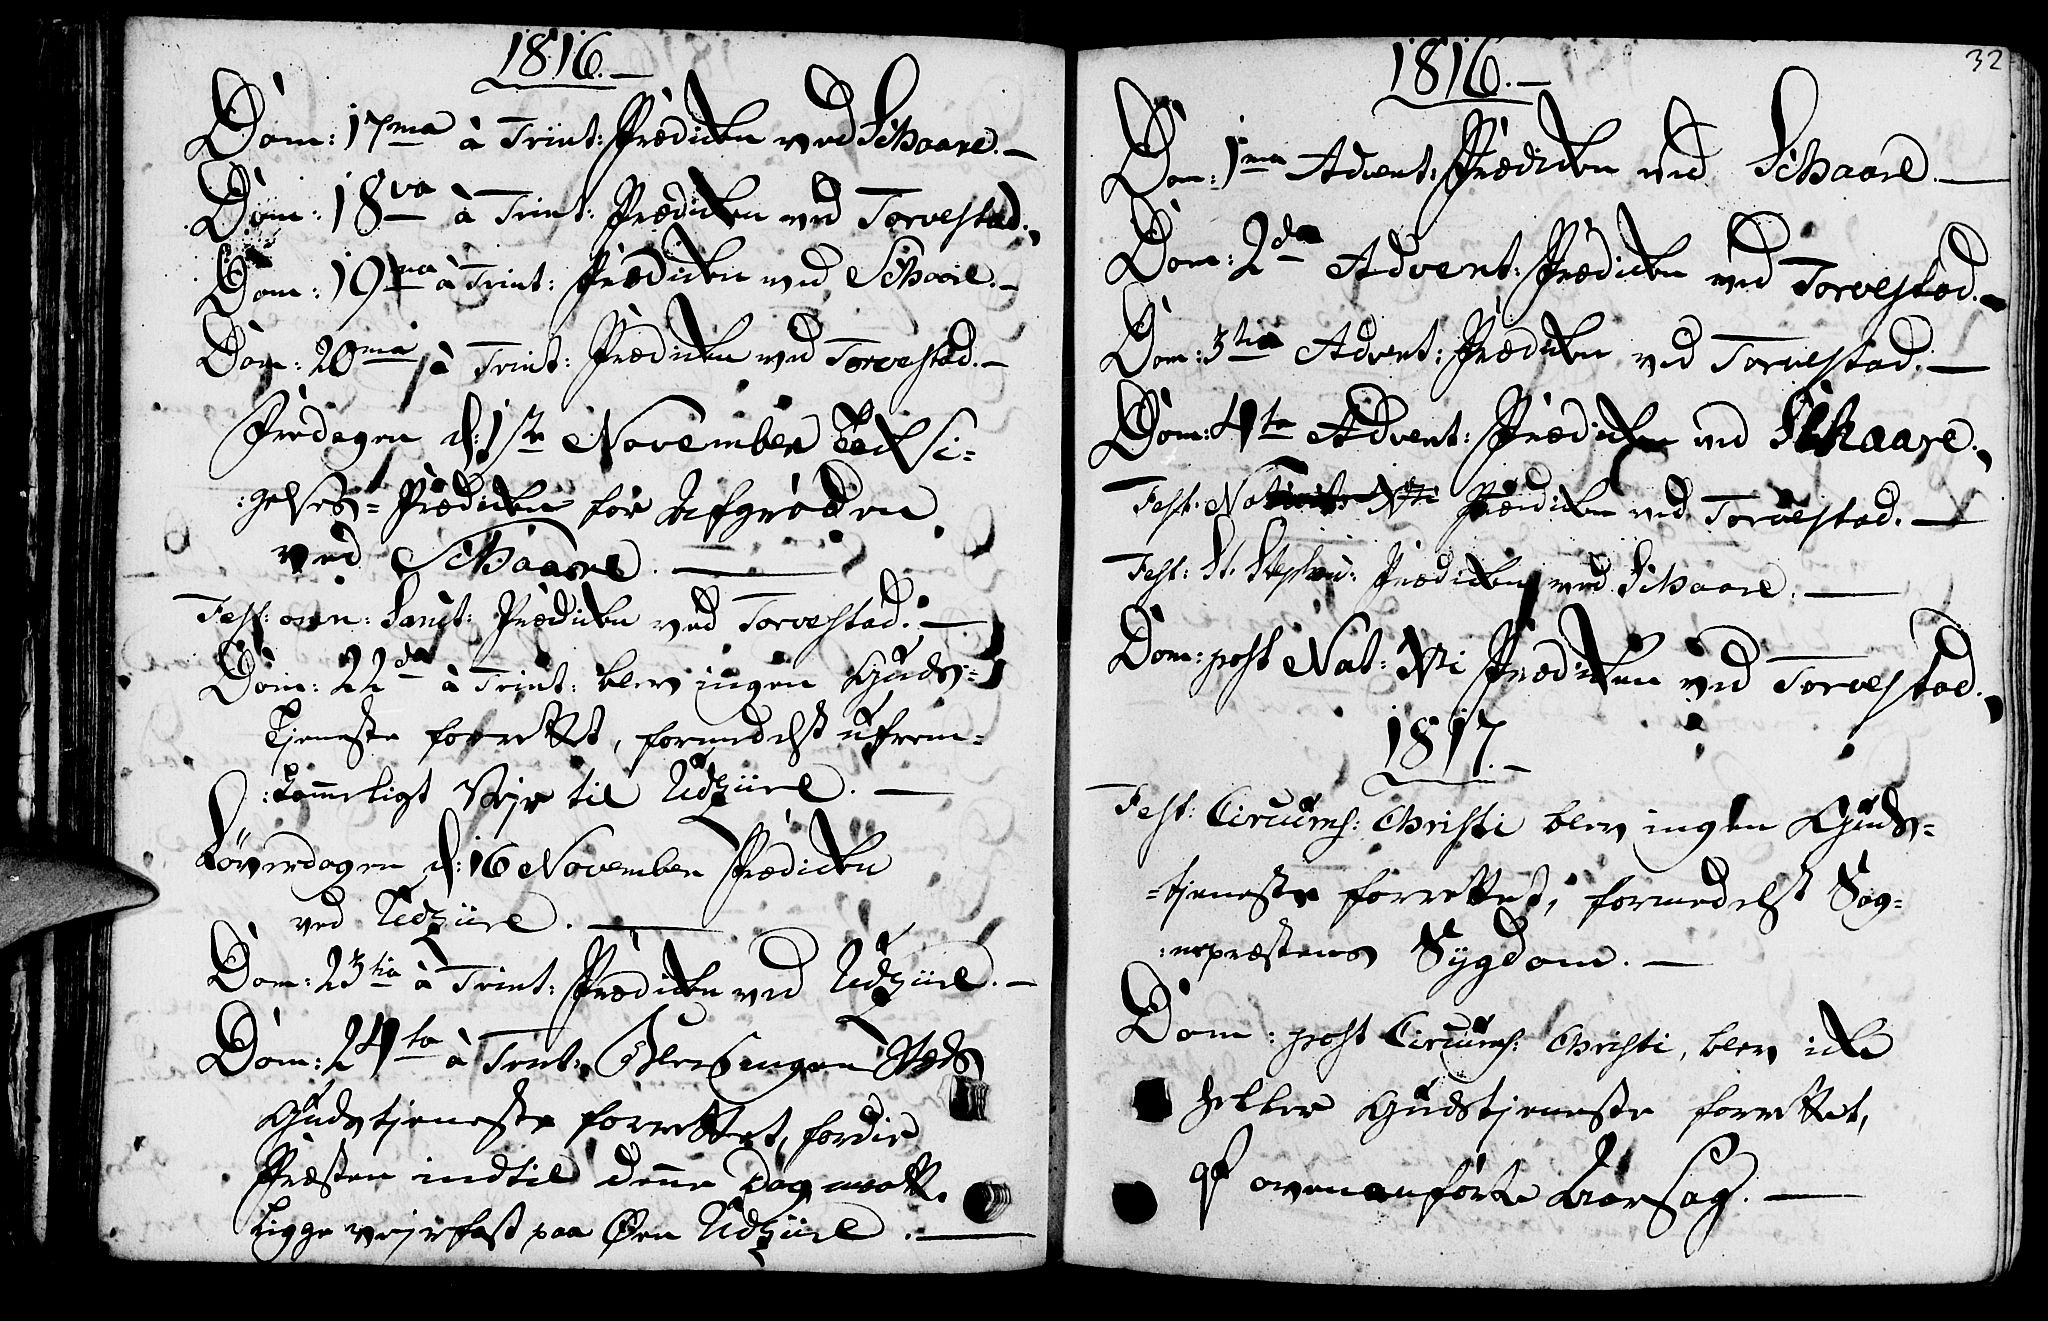 1816.
Dom: 17ma à Trint: Prædicken ved Schaare.
Dom: 18va à Trint: Prædicken ved Torvestad.
Dom: 19na à Trint: Prædicken ved Schaare.
Dom: 20ma à Trint: Prædicken ved Torvestad.
Fredagen d: 1ste November Tacksi=
:gelses=Prædicken for Afgrøden
ved Schaare.
Fest: omn: Sanct: Prædicken ved Torvestad.
Dom: 22da à Trint: blev ingen Guds=
Tjeneste forrettet, formedelst ufrem=
:kommeligt Vejr til Udziire.
Løverdagen d: 16 November Prædicken
ved Udziire.
Dom: 23tia à Trint: Prædicken ved Udziire.
Dom: 24ta à Trint: blev ingen Steds
Gudstjeneste forrettet, fordie
Præsten indtil denne Dag maatte
ligge vejrfast paa Øen Udziire.
32
1816.
Dom: 1ma Advent: Prædicken ved Schaare.
Dom: 2da Advent: Prædicken ved Torvestad.
Dom: 3tia Advent: Prædicken ved Torvestad.
Dom: 4ta Advent: Prædicken ved Schaare.
Fest: Nativit: Xti Prædicken ved Torvestad.
Fest: St. Stephani: Prædicken ved Schaare.
Dom: post Nat: Xti Prædicken ved Torvestad.
1817.
Fest: Circumc: Christi blev ingen Guds=
=tjeneste forrettet, formedelst Sog=
:nepræstens Sygdom.
Dom: post Circumc: Christi, blev icke
heller Gudstjeneste forrettet,
af ovenanførte Aarsag.